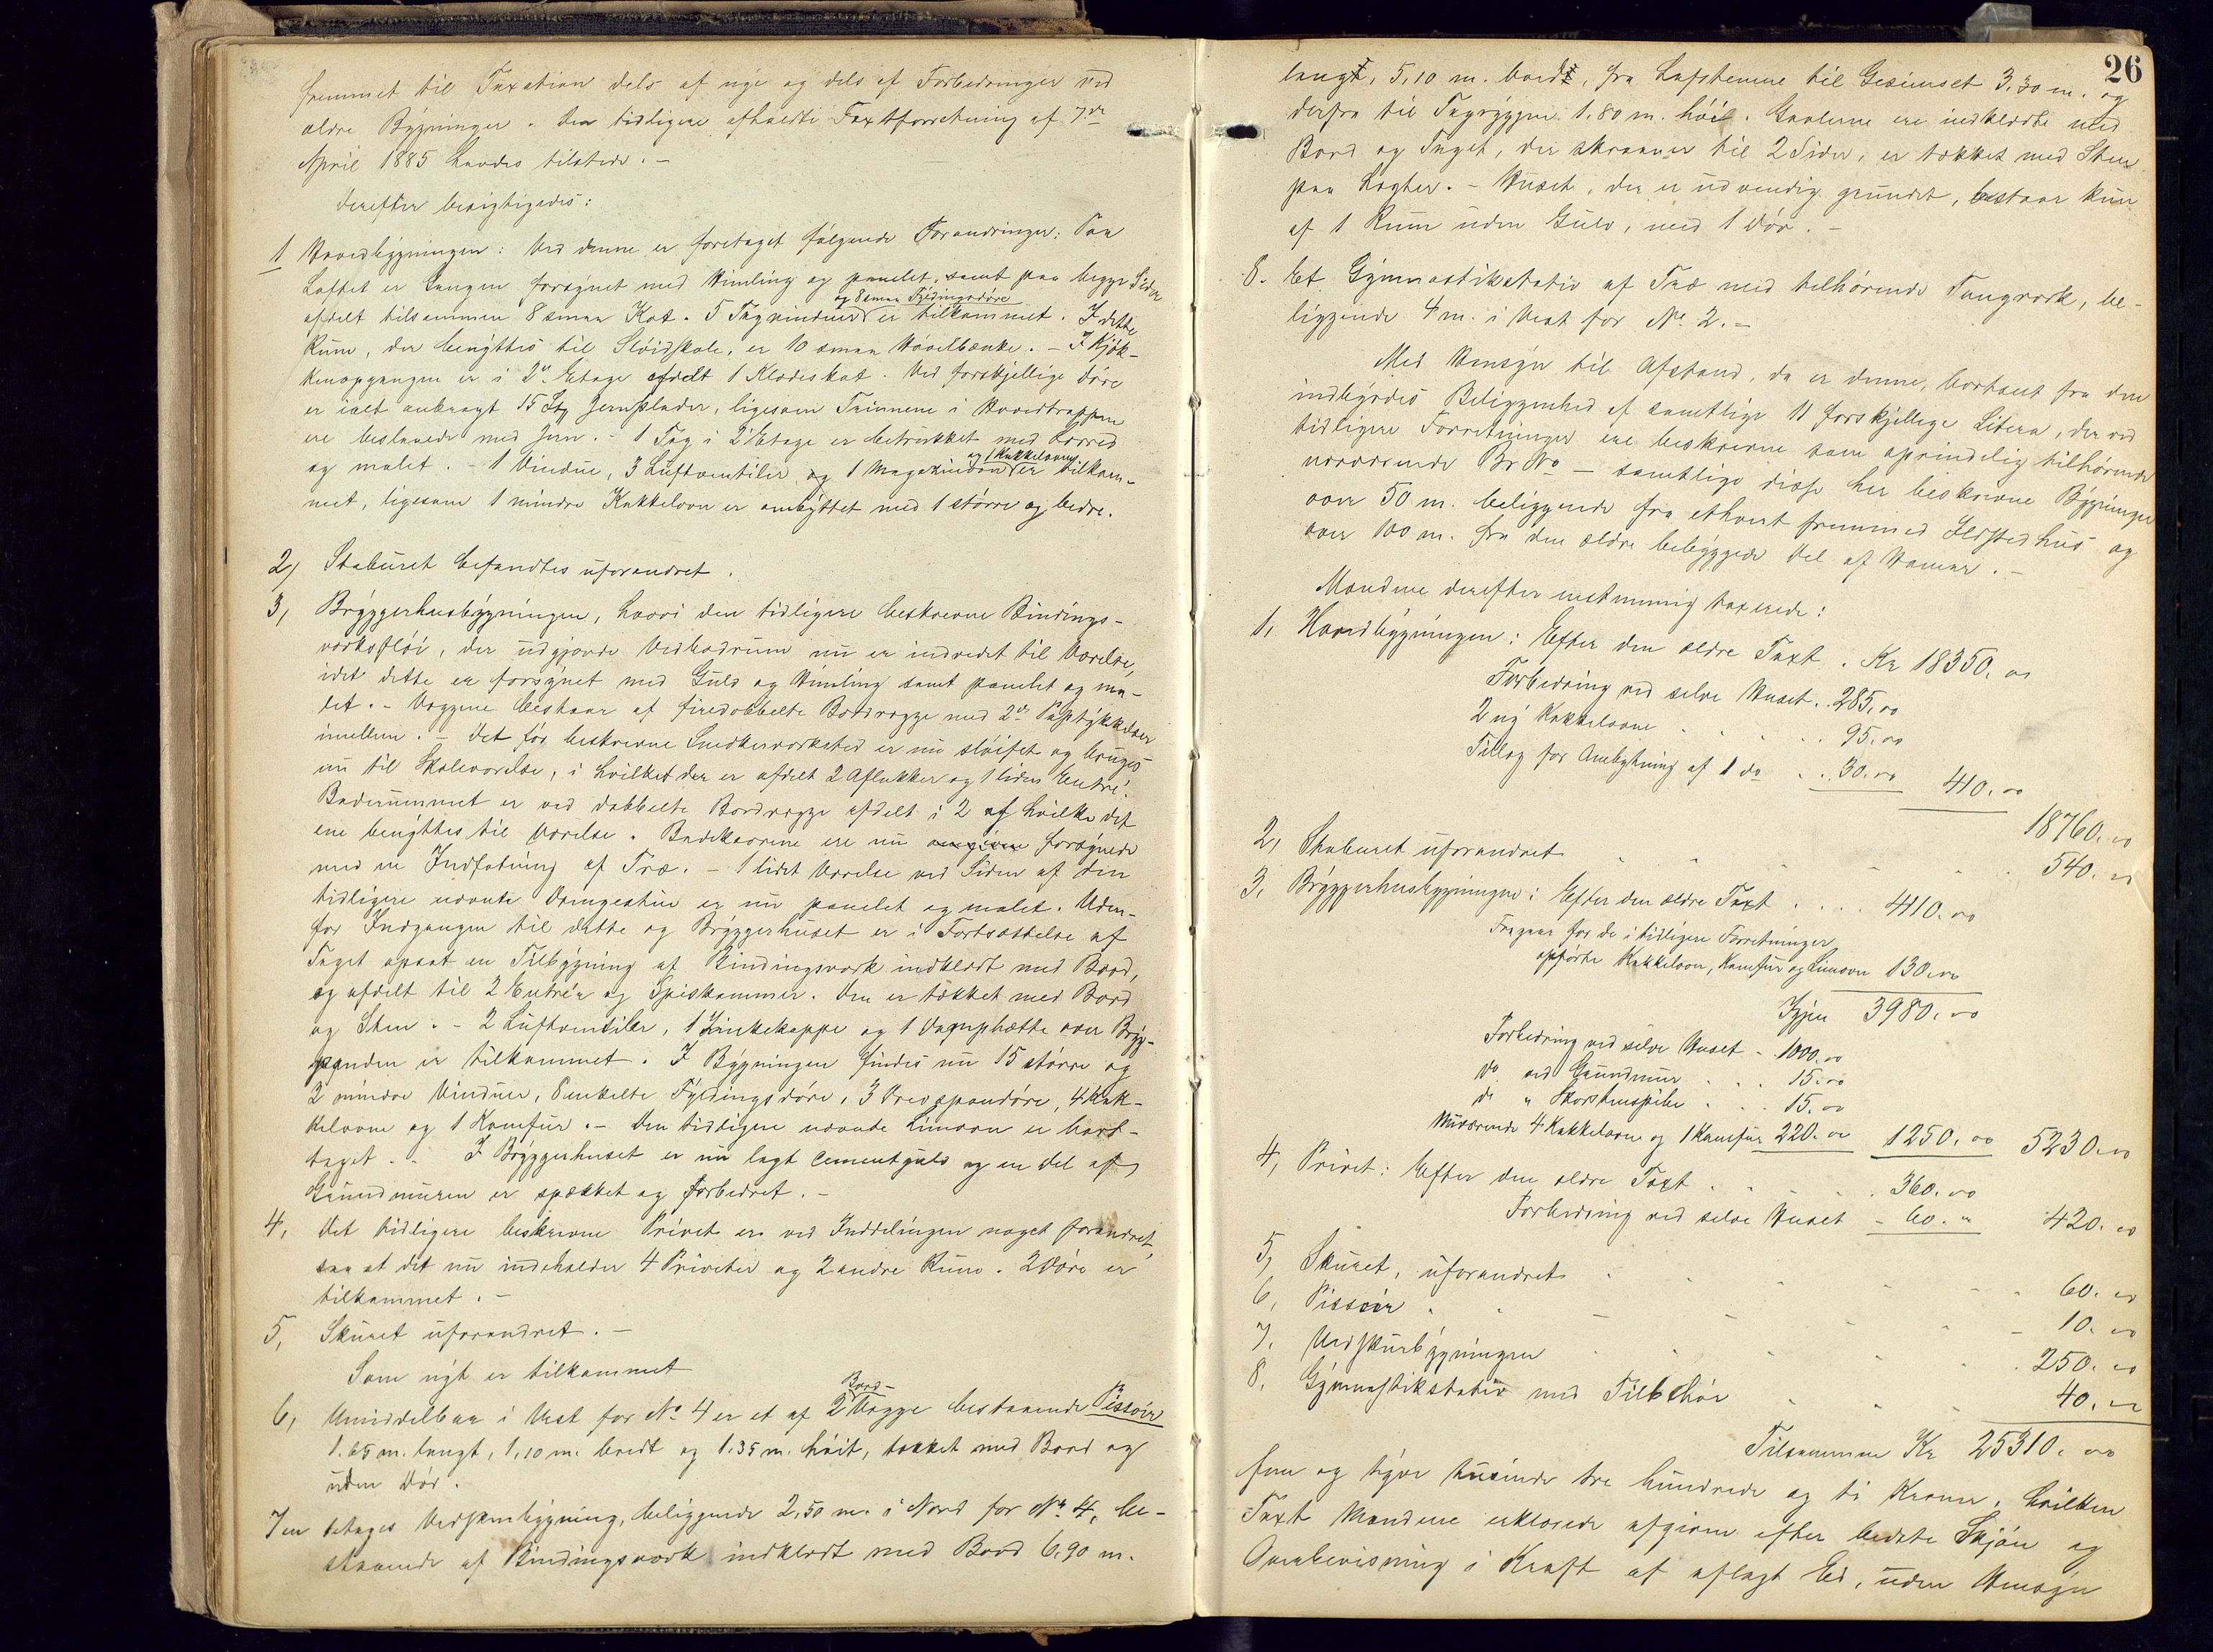 fremmet til Taxation dels af nye og dels af Forbedringer ved
ældre Bygninger. Den tidligere afholdte Taxtforretning af 7de
April 1885 havdes tilstede. –
Derefter besigtigedes:
1 Hovedbygningen: Ved denne er foretaget følgende Forandringer: Paa
Loftet er Gangen forsynet med Himling og panelet, samt paa begge Sider
og 8 smaa Fyldingsdøre
afdelt tilsammen 8 smaa Kot. 5 Tagvinduer er tilkommet. I dette
Rum, der benyttes til Sløidskole, er 10 smaa Høvelbænke. – I Kjøk-
kenopgangen er i 2n Etage afdelt 1 Klædeskot. Ved forskjellige Døre
er ialt anbragt 15 Stg Jernplader, ligesom Trinnene i Hovedtrappen
ere beslaaede med Jern. – 1 Tag i 2' Etage er betrukket med Lærred
og 1 Kakkelovn
og malet. – 1 Vindue, 3 Luftventiler, og 1 Magazinovn er tilkom-
met, ligesom 1 mindre Kakkelovn er ombyttet med 1 større og bedre.
2, Staburet befandtes uforandret.
3, Bryggerhusbygningen, hvori den tidligere beskrevne Bindings-
værksfløi, der udgjorde Vedbodrum nu er indredet til Værelse,
idet dette er forsynet med Gulv og Himling samt panelet og ma-
let. – Væggene bestaar af firedobbelte Bordvægge med 2de Paptykkelser
imellem. – Det før beskrevne Snedkerværksted er nu sløifet og bruges
nu til Skoleværelse, i hvilket der er afdelt 2 Aflukker og 1 liden Entré.
Baderummet er ved dobbelte Bordvægge afdelt i 2 af hvilke det
ene benyttes til Værelse. Badekarrene ere nu omgivne forsynede
med en Indfatning af Træ. – 1 lidet Værelse ved Siden af den
tidligere nævnte Drengestue er nu panelet og malet. Uden-
for Indgangen til dette og Bryggerhuset er i Fortsættelse af
Taget opsat en Tilbygning af Bindingsværk indklædt med Bord,
og afdelt til 2 Entréer og Spiskammer. Den er tækket med Bord
og Sten. – 2 Luftventiler, 1 Zinkekappe og 1 Damphætte over Bryg-
panden er tilkommet. I Bygningen findes nu 15 større og
2 mindre Vinduer, 8 enkelte Fyldingsdøre, 3 Drevspandøre, 4 Kak-
kelovne og 1 Komfur. – Den tidligere nævnte Limovn er bort-
taget. – I Bryggerhuset er nu lagt Cementgulv og en Del af
Grundmuren er spækket og forbedret. –
4, Det tidligere beskrevne Privet er ved Inddelingen noget forandret,
saa at det nu indeholder 4 Priveter og 2 andre Rum. 2 Døre er
tilkommet. –
5, Skuret uforandret. –
Som nyt er tilkommet
Bord-
6, Umiddelbar i Vest for No 4 er et af 2 Vægge bestaaende Pissoir
1.65 m. langt, 1,10 m. bredt og 1.35 m. høit, tækket med Bord og
uden Dør.
7 en etages Vedskurbygning, beliggende 2,50 m. i Nord for No 4, be-
staaende af Bindingsværk indklædt med Bord 6,90 m.
26
langt, 5,10 m. bredt, fra Lafstenene til Gesimset 3,30 m. og
derfra til Tagryggen 1.80 m. høit. Gavlerne ere indklædte med
Bord og Taget, der skraaner til 2 Sider, er tækket med Sten
paa Lægter. – Huset, der er udvendig grundet, bestaar kun
af 1 Rum uden Gulv, med 1 Dør. –
8. Et Gymnastikstativ af Træ med tilhørende Tougværk, be-
liggende 4 m. i Vest for No 2. –
Med Hensyn til Afstand, da er denne, bortseet fra den
indbyrdes Beliggenhed af samtlige 11 forskjellige Litera, der ved
tidligere Forretninger ere beskrevne som oprindelig tilhørende
nærværende Br No – samtlige disse her beskrevne Bygninger
over 50 m. beliggende fra ethvert fremmed Ildstedhus og
over 100 m. fra den ældre bebyggede Del af Hamar. –
Mændene derefter enstemmig taxerede:
1, Hovedbygningen: Efter den ældre Taxt . Kr 18350. 00
Forbedring ved selve Huset . . 285,00
2 ny Kakkelovne . . . . . 95.00
Tillæg for Ombytning af 1 do . . 30.00 410.00
18760.00
2, Staburet uforandret . . . . . . 540. 00
3, Bryggerhusbygningen: Efter den ældre Taxt . . . . 4110.00
Fragaar for de i tidligere Forretninger
opførte Kakkelovn, Komfur og Limovn 130.00
Igjen 3980.00
Forbedring ved selve Huset . . 1000.00
do ved Grundmur . . . 15.00
do " Skorstenspibe . . . 15.00
Nuværende 4 Kakkelovne og 1 Komfur 220.00 1250.00 5230.00
4, Privet: Efter den ældre Taxt . . . . . 360.00
Forbedring ved selve Huset – 60. " 420. 00
5, Skuret, uforandret . . . . . . 60. 00
6, Pissoir . . . . . . 10. 00
7. Vedskurbygningen . . . . . . 250. 00
8. Gymnastikstativ med Tilbehør . . . 40. 00
Tilsammen Kr 25310. 00
fem og tyve tusinde tre hundrede og ti Kroner, hvilken
Taxt Mændene erklærede afgiven efter bedste Skjøn og
Overbevisning i Kraft af aflagt Ed, uden Hensyn